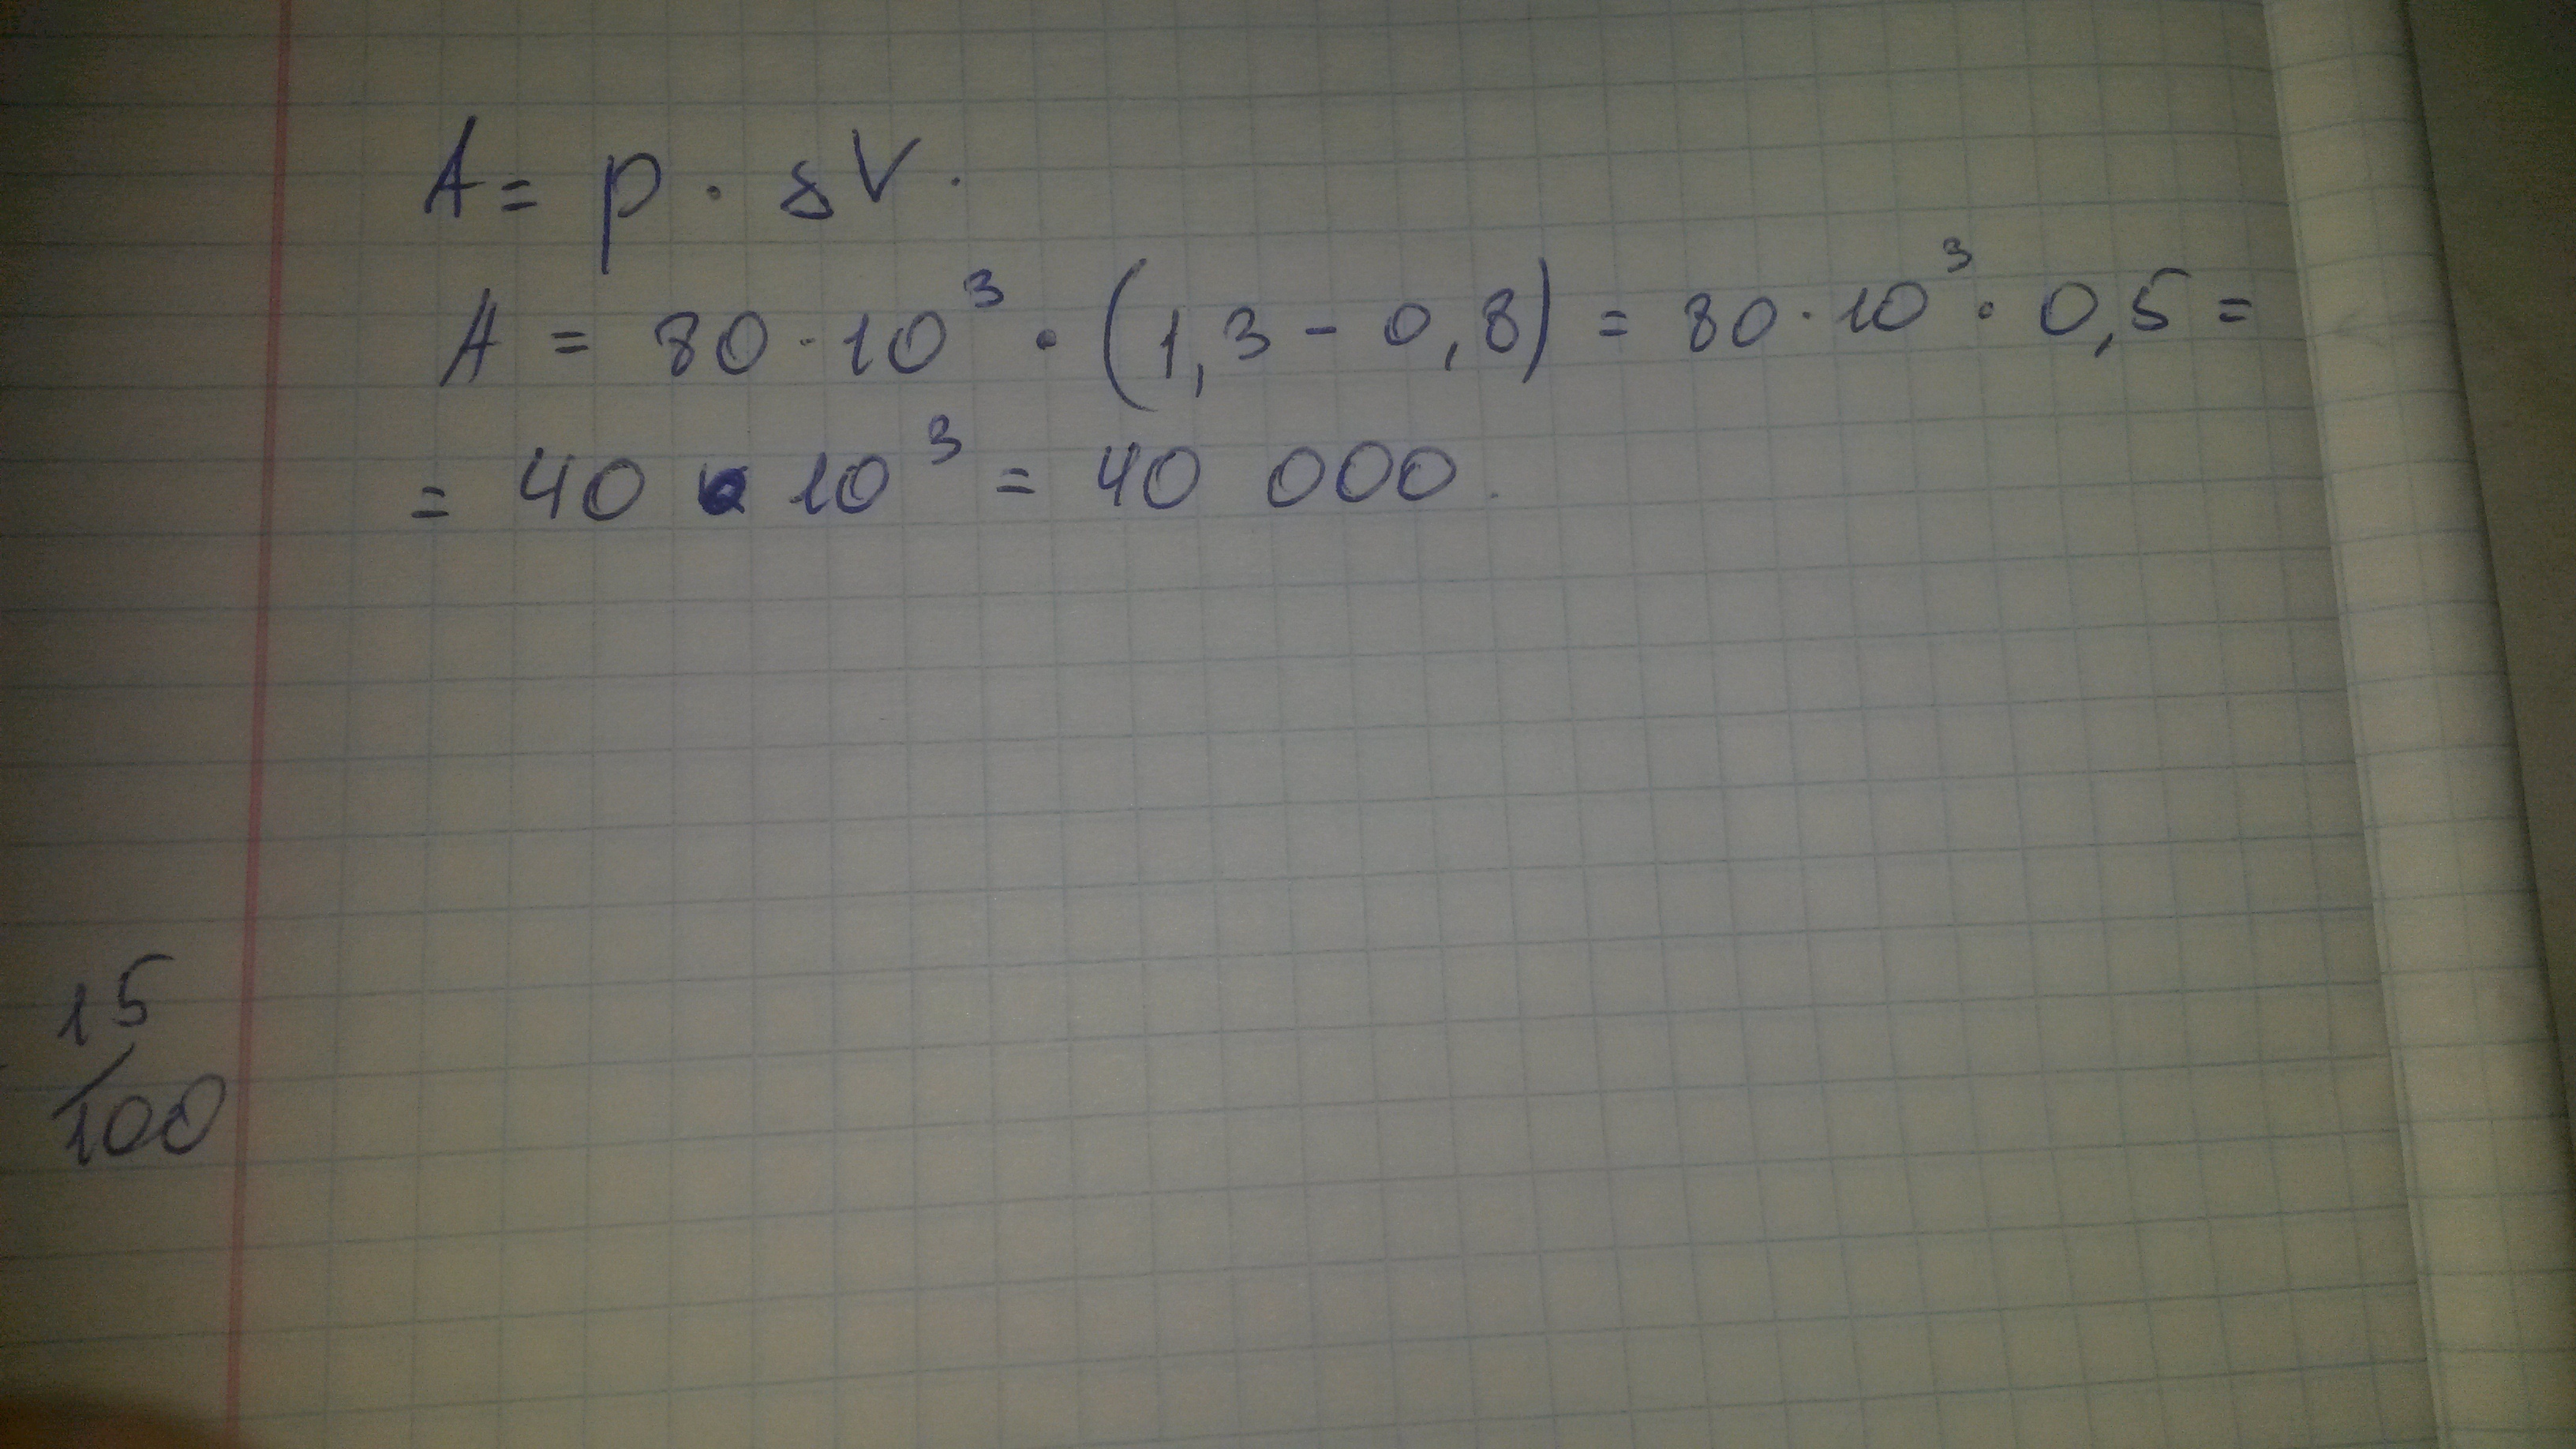 A = p · ΔV.
A = 80 · 10³ · (1,3 - 0,8) = 80 · 10³ · 0,5 =
= 40 · 10³ = 40 000.
15
/100